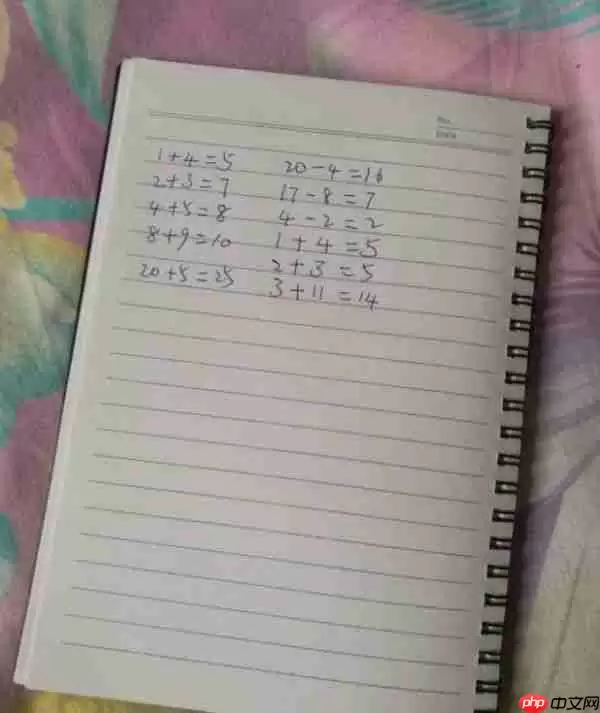 No.
Date
1+4=5 20-4=16
2+3=7 17-8=7
4+5=8 4-2=2
8+9=10 1+4=5
2+3=5
20+5=25 3+11=14
php 中文网